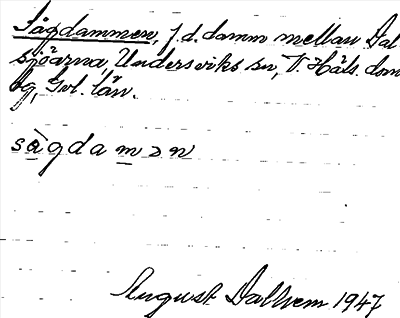 Sågdammen, f.d. damm mellan Dal
sjöarna, Undersviks sn, V. Häls. dom
sg, Gvl. län.
sågdamən
August Dalhem 1947